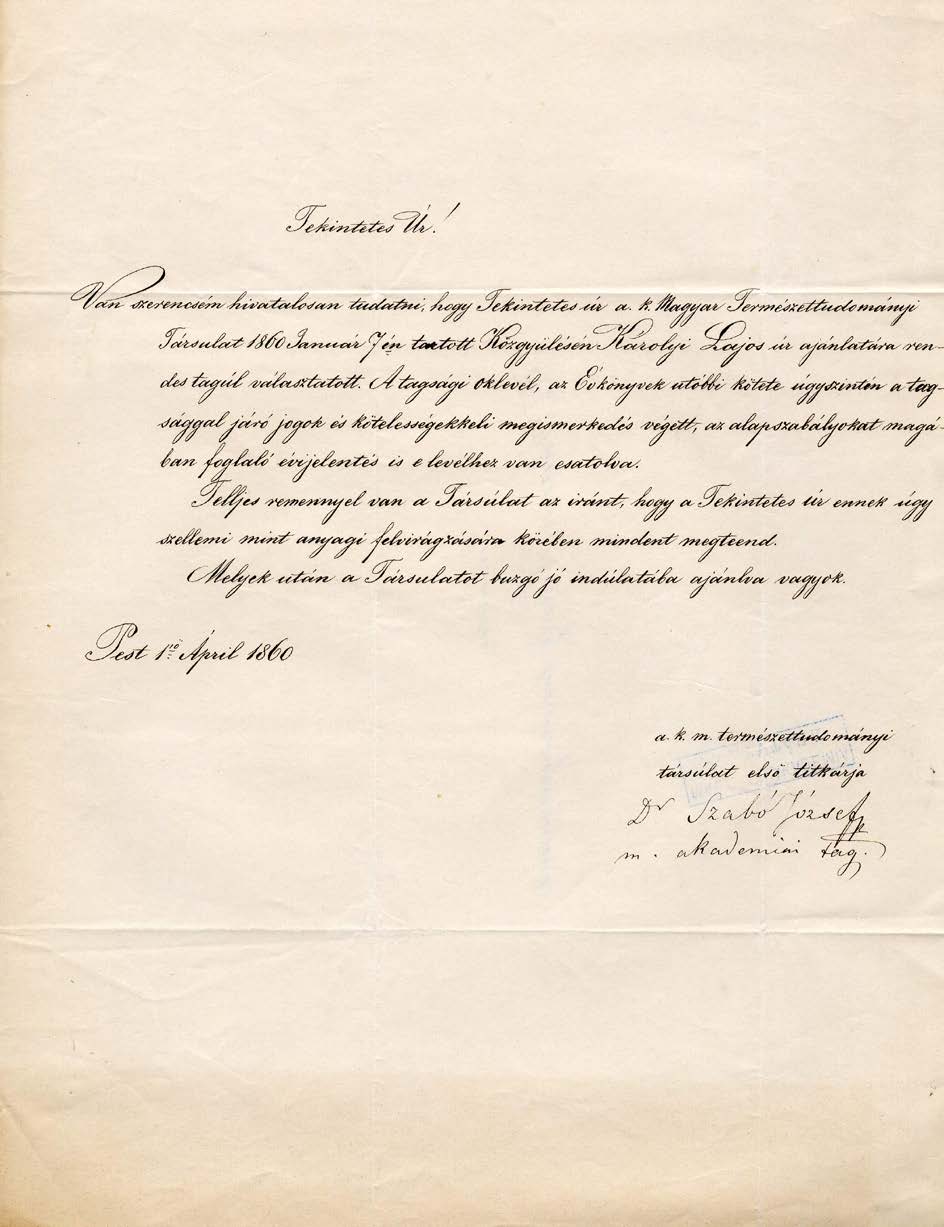 Tekintetes Úr!
Van szerencsém hivatalosan tudatni, hogy Tekintetes úr a k. Magyar Természettudományi
Társulat 1860 Január 7én tartott Közgyülésén Károlyi Lajos úr ajánlatára ren-
des tagúl választatott. A tagsági oklevél, az Évkönyvek utóbbi kötete úgyszintén a tag-
sággal járó jogok és kötelességekkeli megismerkedés végett, az alapszabályokat magá-
ban foglaló évijelentés is e levélhez van csatolva.
Telljes remennyel van a Társúlat az iránt, hogy a Tekintetes úr ennek úgy
szellemi mint anyagi felvirágzására körében mindent megteend.
Melyek után a Társulatot buzgó jó indúlatába ajánlva vagyok.
Pest 1ᵒ Ápril 1860
a. k. m. természettudományi
társúlat első titkárja
Dr Szabó József
m. akademiai tag.